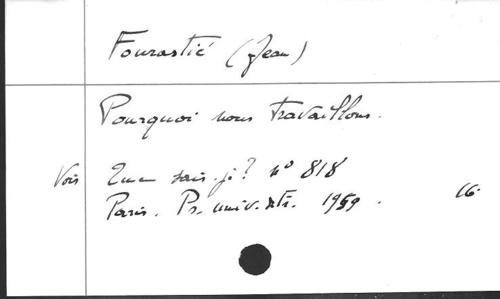 Fourastié (Jean)
Pourquoi nous travaillons.
Voir Que sais-je? n° 818
Paris. Pr. univ. 1959. 16.